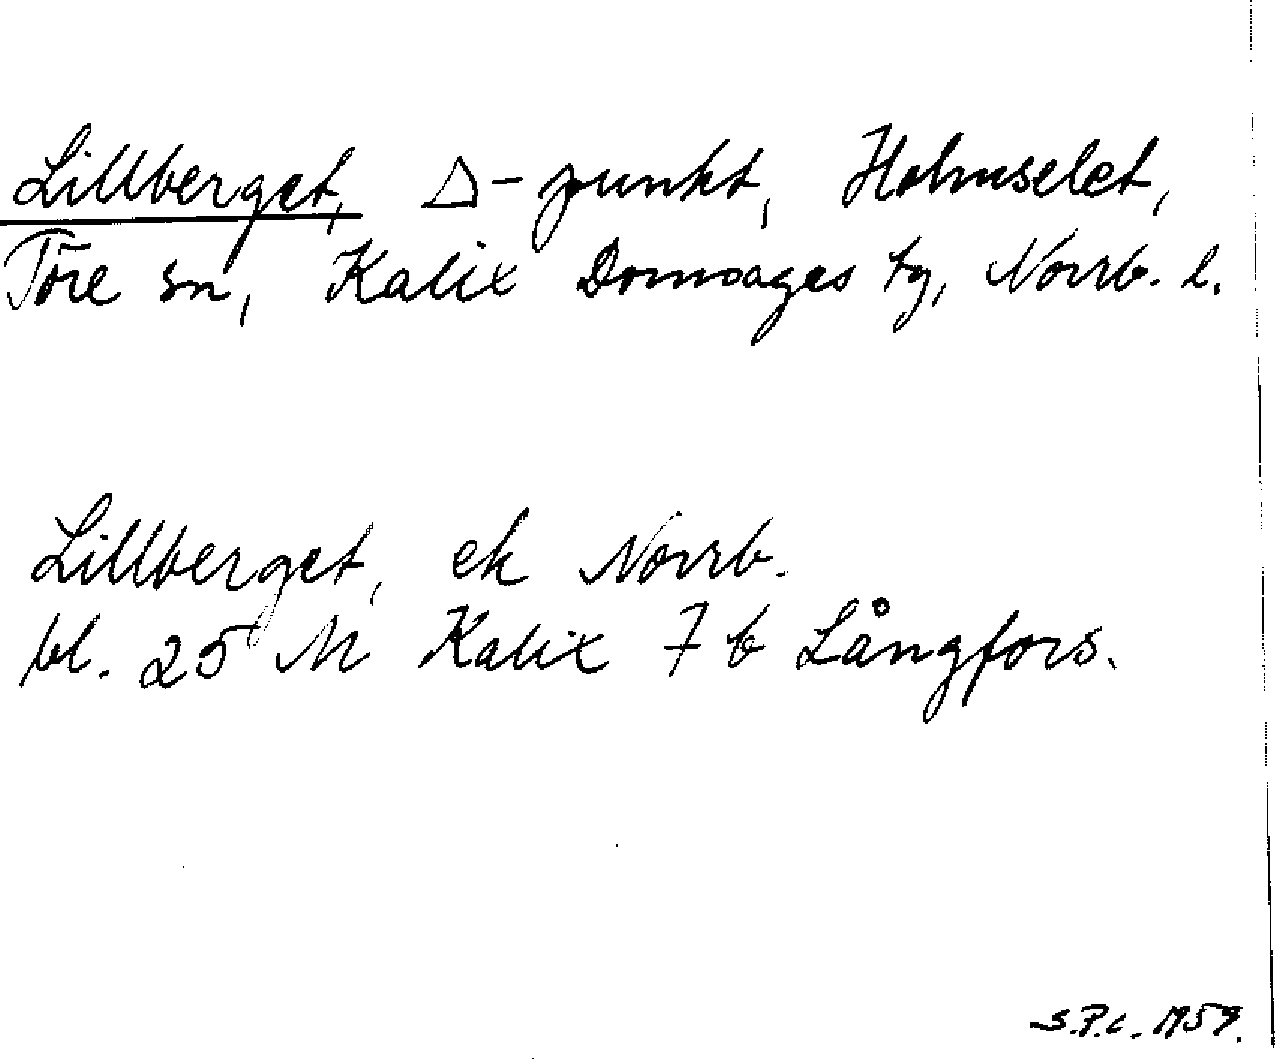 Lillberget, Δ-punkt, Holmselet,
Töre sn, Kalix Domsagas tg, Norrb. l.
Lillberget, ek Norrb.
bl. 25 M Kalix 7 b Långfors.
S.P.C. 1959.